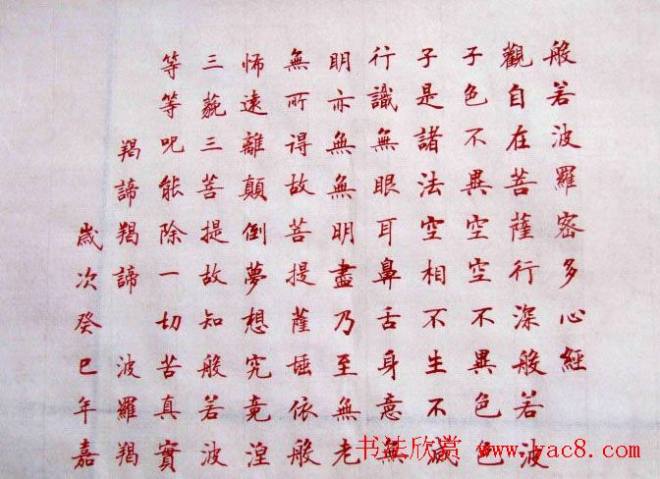 般若波羅密多心經
觀自在菩薩行深般若波
子色不異空空不異色色
子是諸法空相不生不滅
行識無眼耳鼻舌身意無
明亦無無明盡乃至無老
無所得故菩提薩埵依般
怖遠離顛倒夢想究竟涅
三藐三菩提故知般若波
等等呪能除一切苦真實
羯諦羯諦 波羅羯
歲次癸巳年嘉
书法欣赏 www.yac8.com